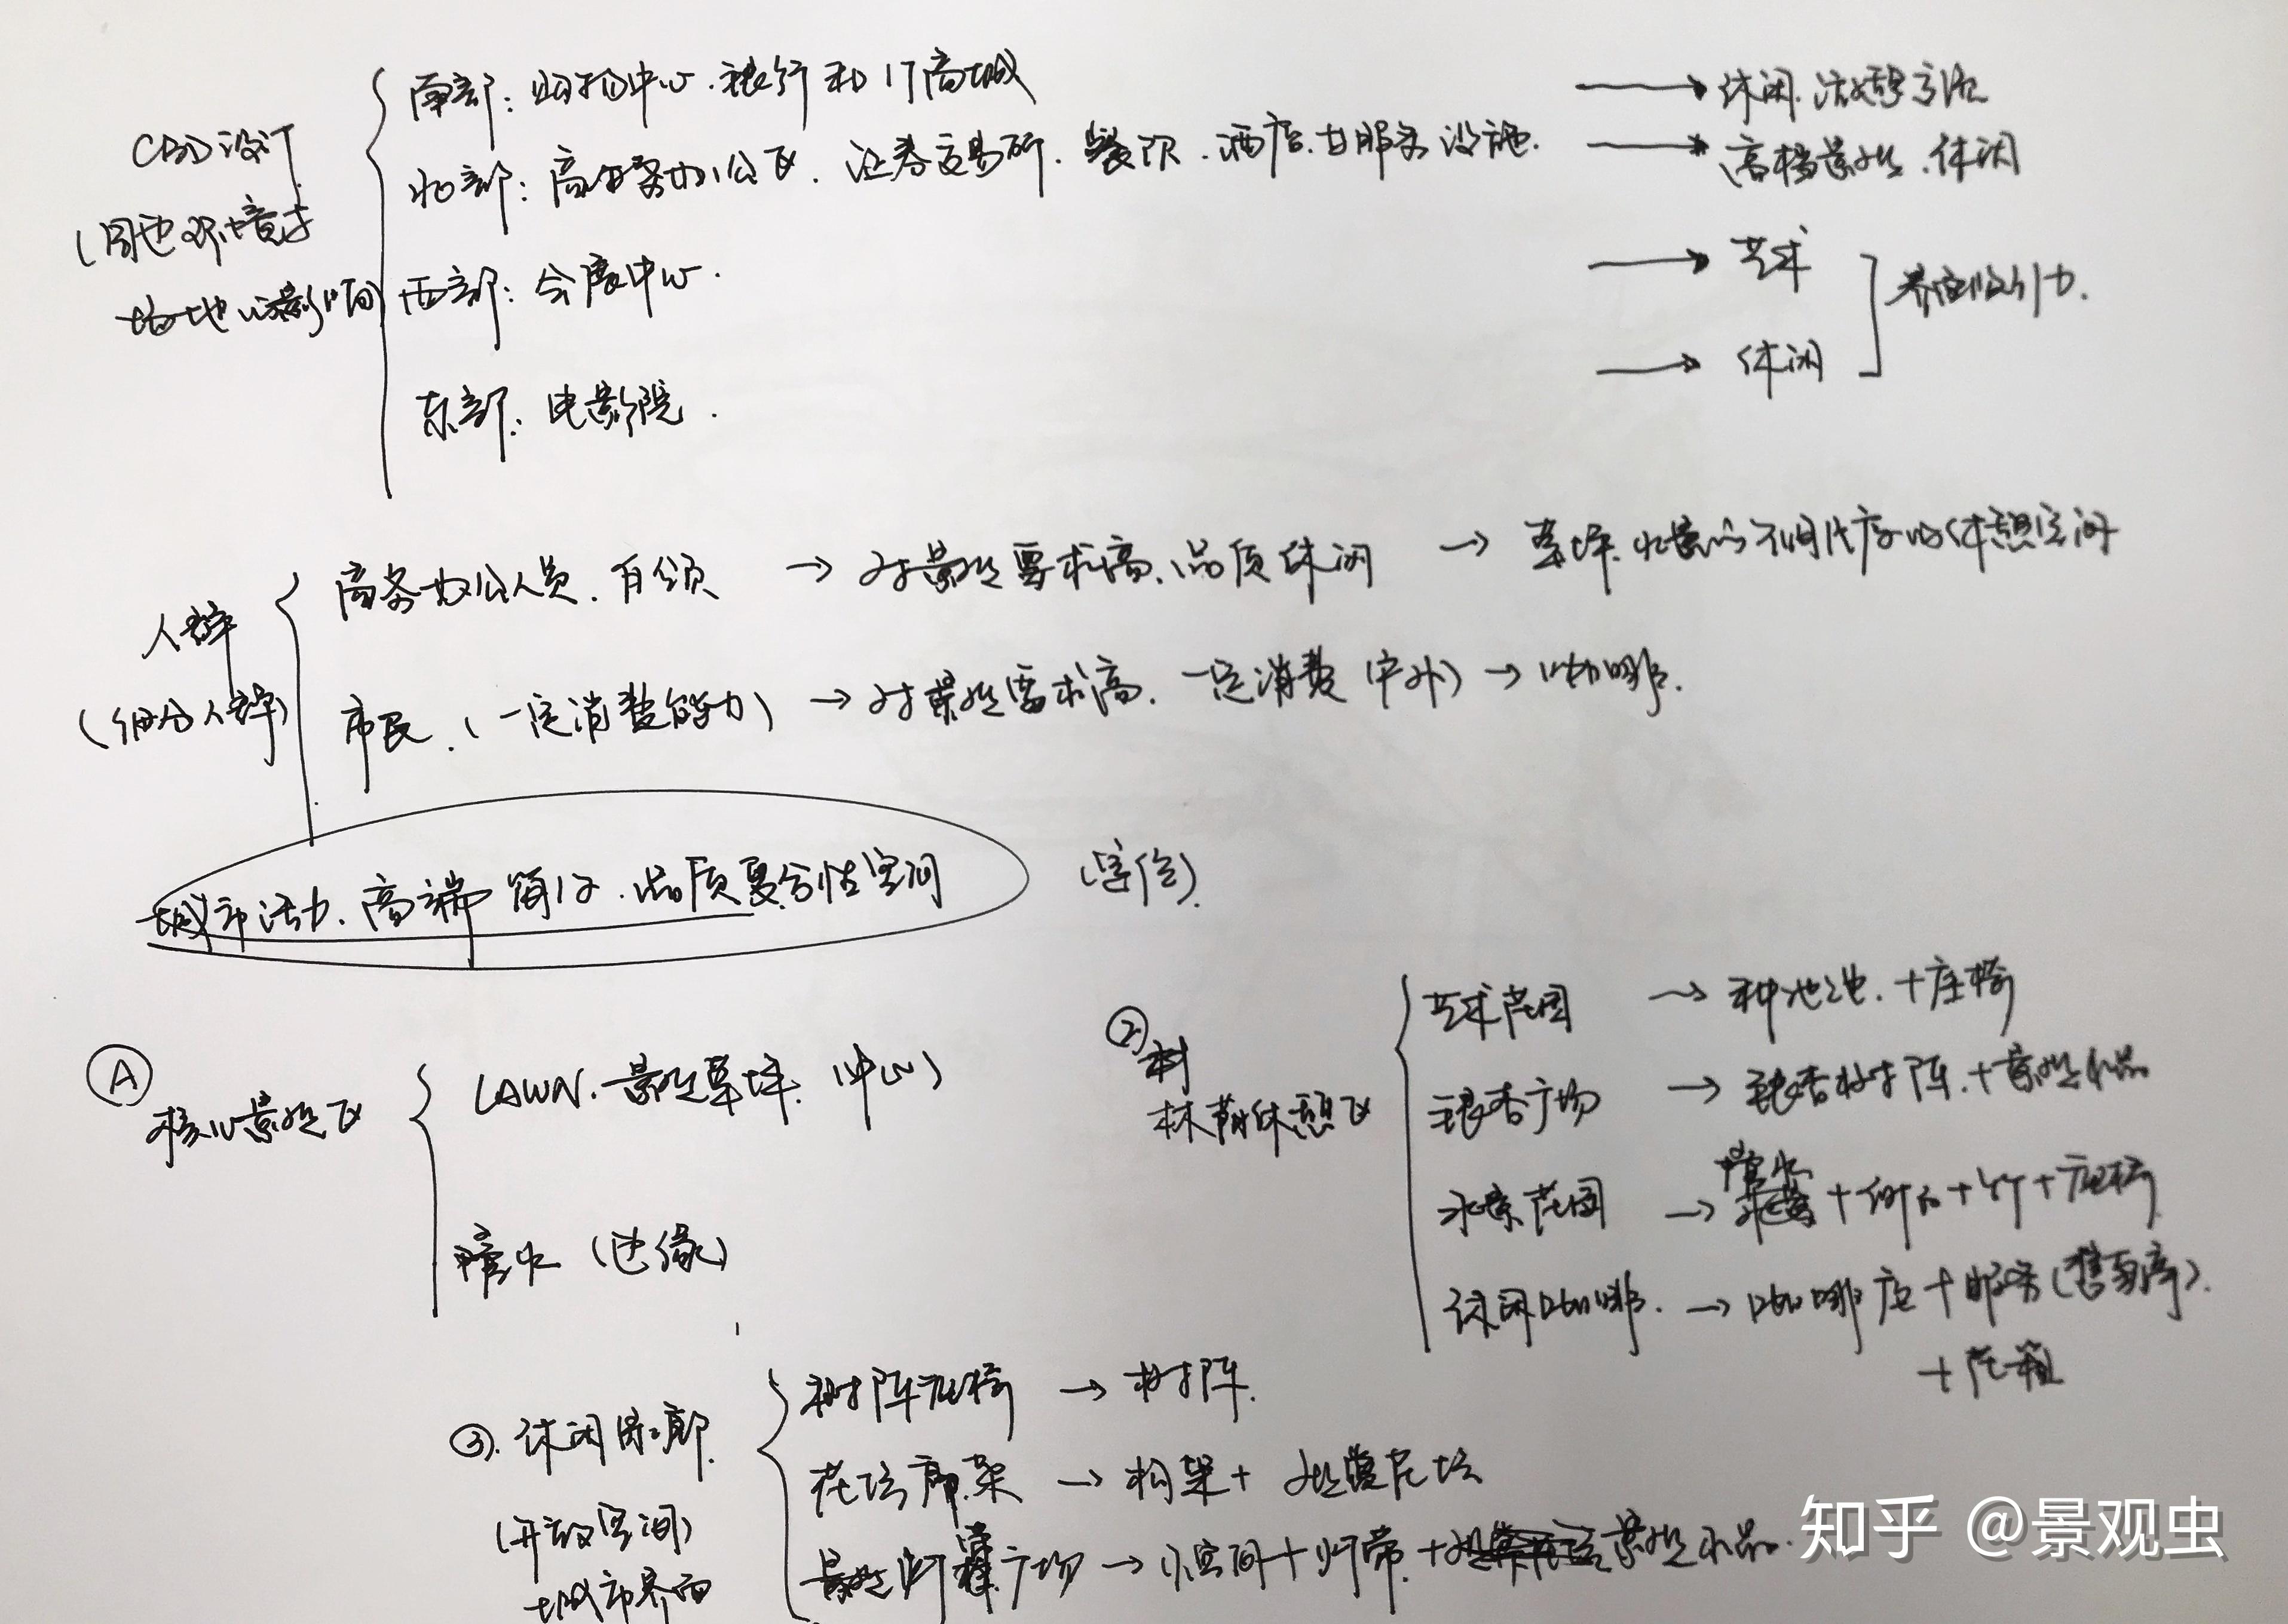 CBD设计
(周边环境对
场地的影响)
南部：购物中心．银行和IT商城
北部：高档商务办公区．证券交易所．餐饮．酒店．甘服务设施．
西部：会展中心．
东部：电影院．
→ 休闲．活动引流
→ 高档景观．休闲
→ 艺术
→ 休闲
界面吸引力．
人群
(细分人群)
商务办公人员．白领 → 对景观要求高．品质休闲 → 草坪．水景的不同尺度的休憩空间
市民．(一定消费能力) → 对景观要求高．一定消费(户外) → 咖啡．
城市活力．高端简约．品质复合性空间
(定位)
Ⓐ
核心景观区
LAWN．景观草坪．(中心)
叠水 (边缘)
②
树
林荫休憩区
艺术花园 → 种池．+座椅
银杏广场 → 银杏树阵．+景观小品
水景花园 → 叠水+汀步+灯+座椅
休闲咖啡．→ 咖啡店+服务(售卖亭)．
+花箱
③．休闲景廊．
(开放空间)
城市界面
树阵座椅 → 树阵．
花坛廊架 → 构架+花坛
景观灯广场 → 小空间+灯带．+景观小品．
知乎 @景观虫